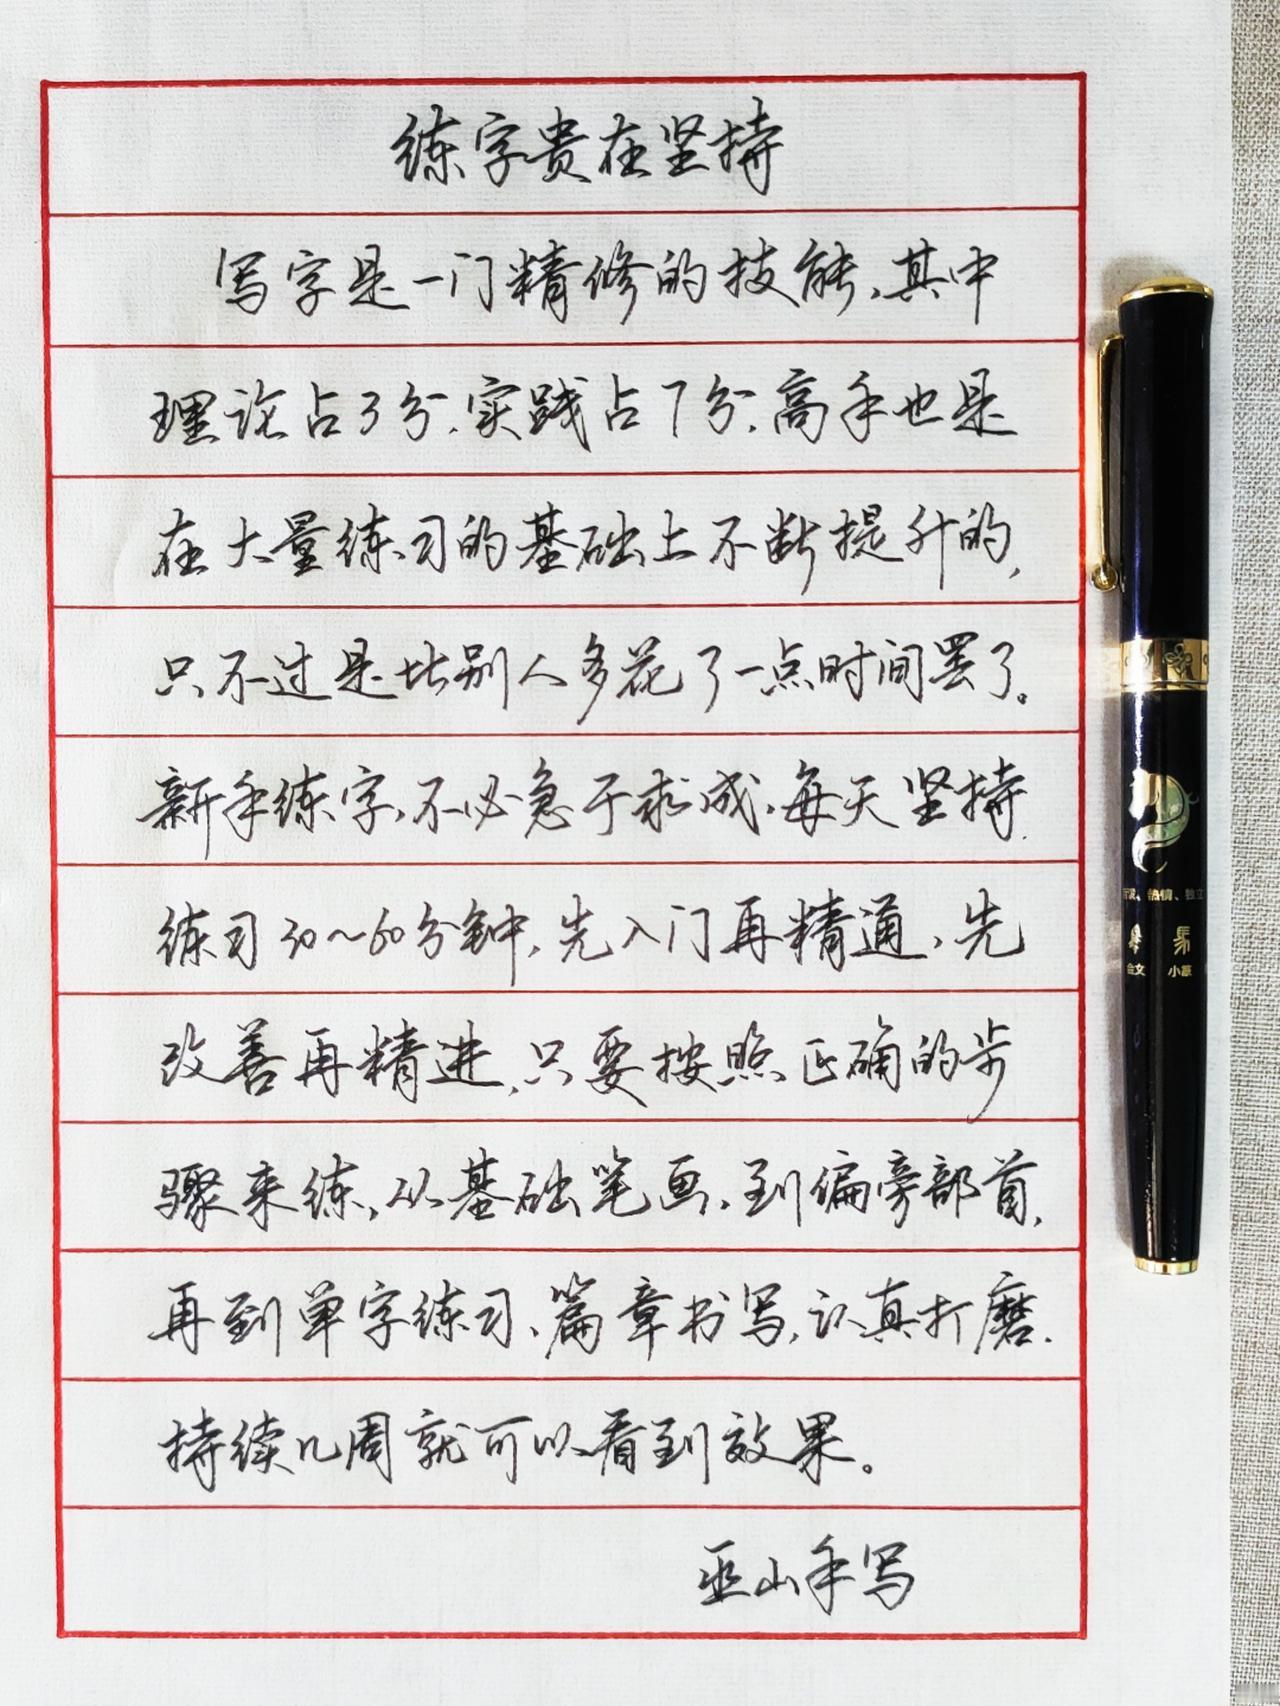 练字贵在坚持
写字是一门精修的技能,其中
理论占3分,实践占7分,高手也是
在大量练习的基础上不断提升的,
只不过是比别人多花了一点时间罢了。
新手练字,不必急于求成,每天坚持
练习30~60分钟,先入门再精通,先
改善再精进,只要按照正确的步
骤来练,从基础笔画,到偏旁部首,
再到单字练习、篇章书写,认真打磨.
持续几周就可以看到效果。
巫山手写
、热情、独立
金文 小篆